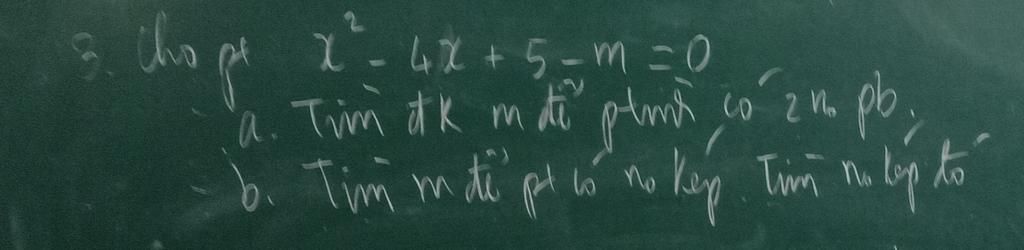 3. Cho pt x² - 4x + 5 - m = 0
a. Tìm đk m để ptrình có 2 no pb.
b. Tìm m để pt có no kép. Tìm no kép đó